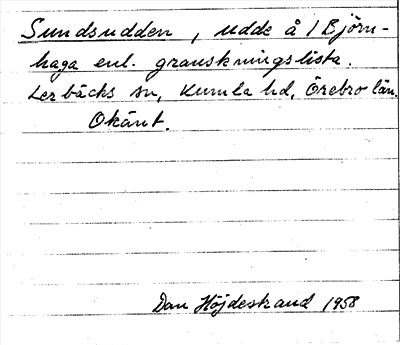 Sundsudden, udde å 1 Björn-
haga enl. granskningslista.
Lerbäcks sn, Kumla hd, Örebro län.
Okänt.
Dan Höjdestrand 1958